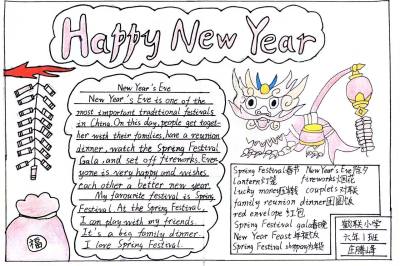 Happy New Year
New Year's Eve
New Year's Eve is one of the
most important traditional festivals
in China. On this day, people get toget-
her with their families, have a reunion
dinner, watch the Spring Festival
Gala, and set off fireworks. Ever-
yone is very happy and wishes
each other a better new year.
My favourite festival is Spring
Festival. At the Spring Festival,
I can play with my friends.
It's a big family dinner.
I love Spring Festival.
福
Spring Festival春节 New Year's Eve除夕
lantern灯笼 fireworks烟花
lucky money压岁钱 couplets对联
family reunion dinner团圆饭
red envelope 红包
Spring Festival gala春晚
New Year Feast 年夜饭
Spring Festival shopping办年货
小学
六年1班